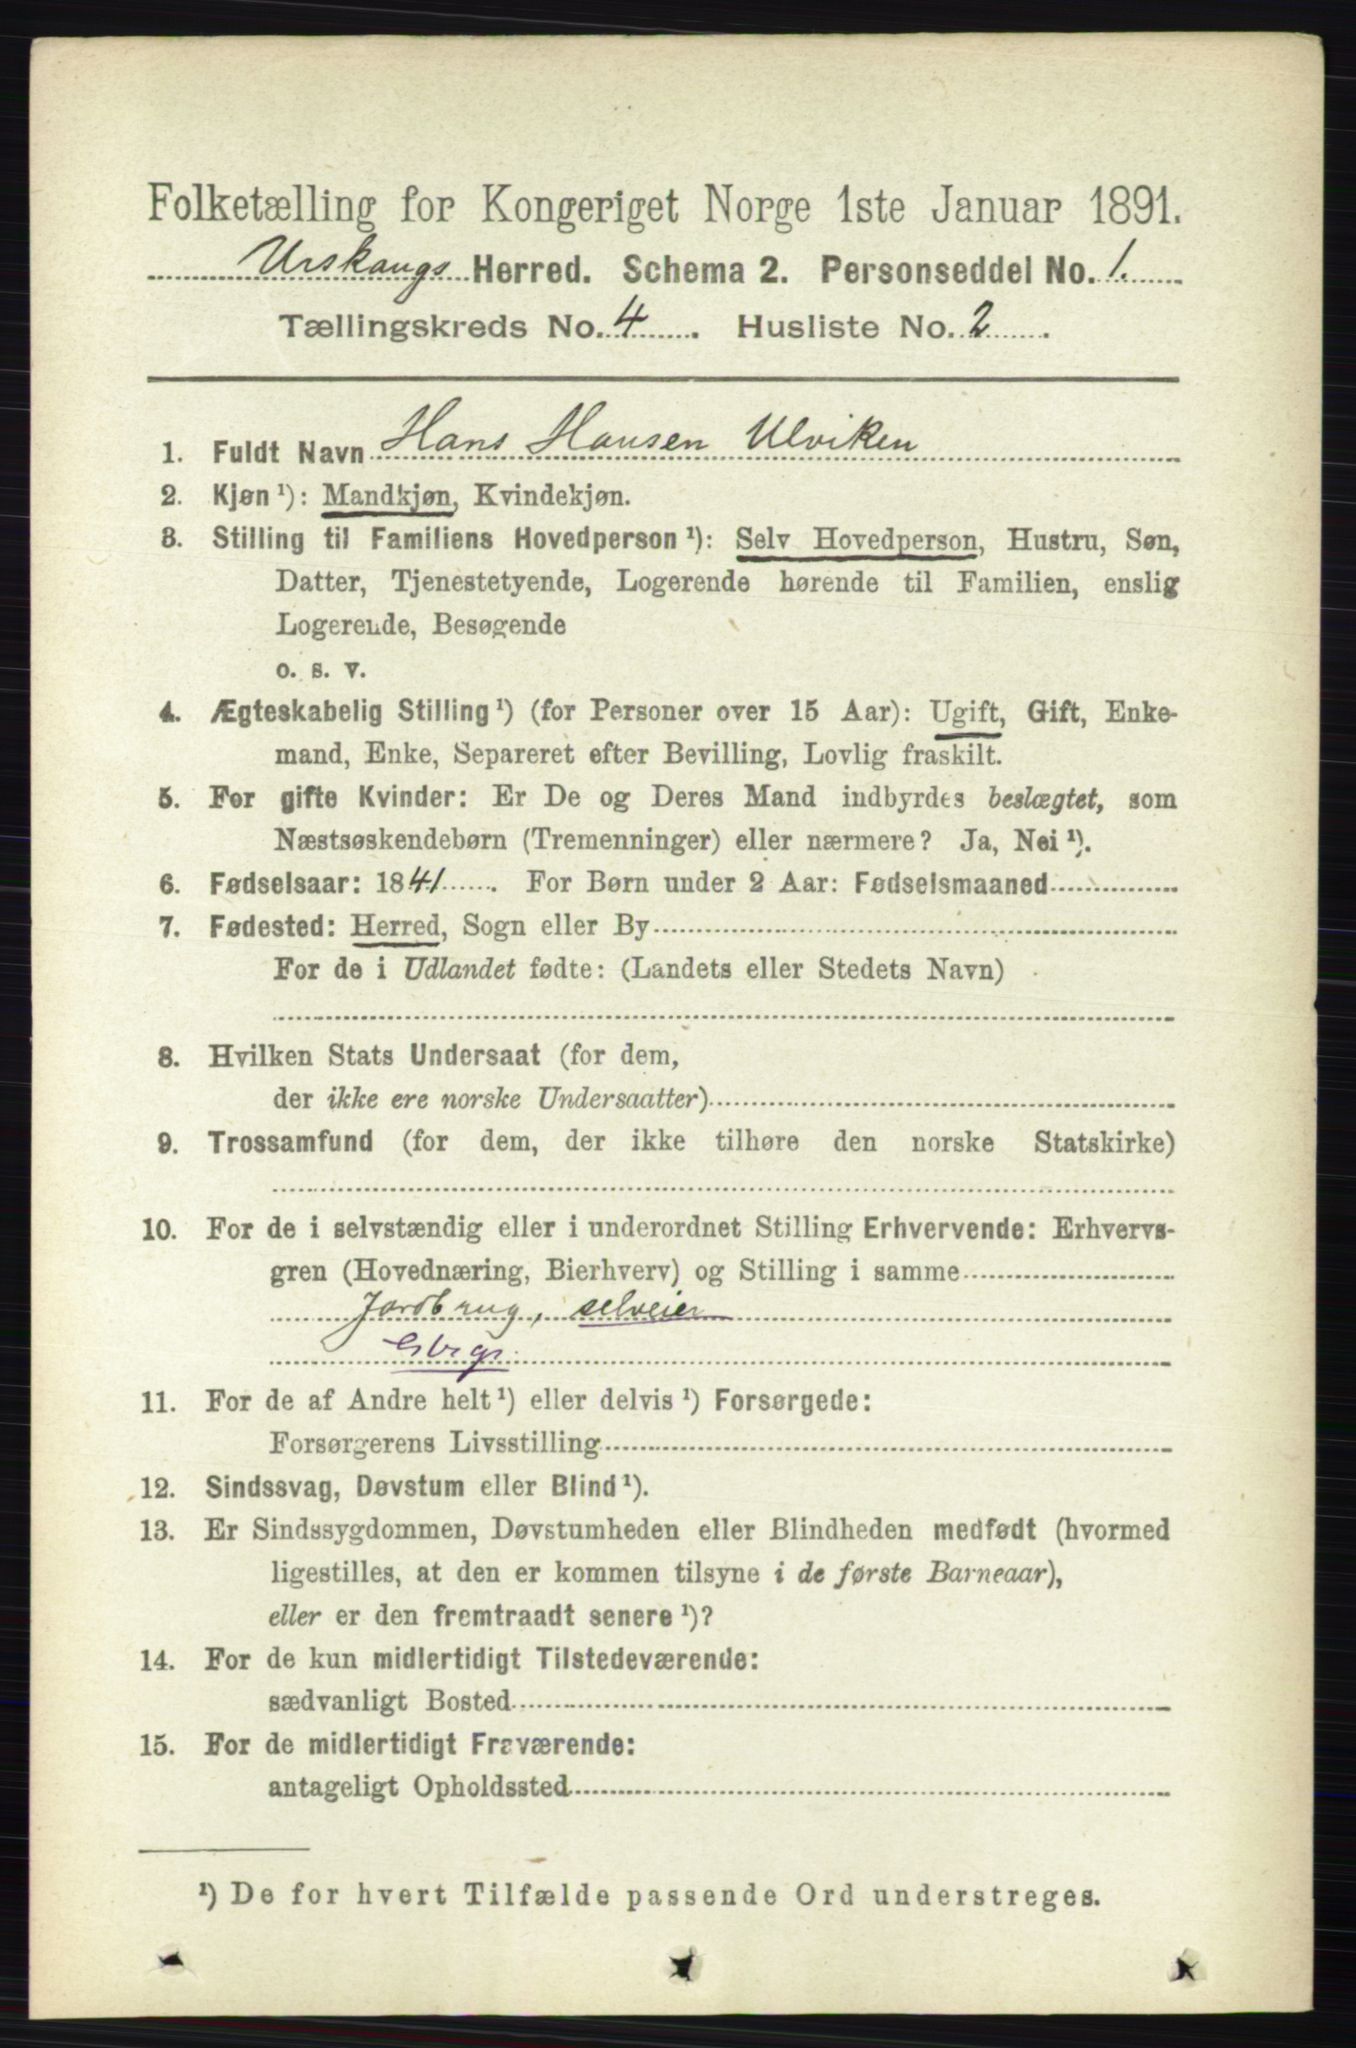 Folketælling for Kongeriget Norge 1ste Januar 1891.
Urskaugs Herred. Schema 2. Personseddel No. 1.
Tællingskreds No. 4. Husliste No. 2.
1. Fuldt Navn Hans Hansen Ulviken
2. Kjøn ¹): Mandkjøn, Kvindekjøn.
3. Stilling til Familiens Hovedperson ¹): Selv Hovedperson, Hustru, Søn,
Datter, Tjenestetyende, Logerende hørende til Familien, enslig
Logerende, Besøgende
o. s. v.
4. Ægteskabelig Stilling ¹) (for Personer over 15 Aar): Ugift, Gift, Enke-
mand, Enke, Separeret efter Bevilling, Lovlig fraskilt.
5. For gifte Kvinder: Er De og Deres Mand indbyrdes beslægtet, som
Næstsøskendebørn (Tremenninger) eller nærmere? Ja, Nei ¹).
6. Fødselsaar: 1841. For Børn under 2 Aar: Fødselsmaaned
7. Fødested: Herred, Sogn eller By
For de i Udlandet fødte: (Landets eller Stedets Navn)
8. Hvilken Stats Undersaat (for dem,
der ikke ere norske Undersaatter)
9. Trossamfund (for dem, der ikke tilhøre den norske Statskirke)
10. For de i selvstændig eller i underordnet Stilling Erhvervende: Erhvervs-
gren (Hovednæring, Bierhverv) og Stilling i samme
Jordbrug, selveier
11. For de af Andre helt ¹) eller delvis ¹) Forsørgede:
Forsørgerens Livsstilling
12. Sindssvag, Døvstum eller Blind ¹).
13. Er Sindssygdommen, Døvstumheden eller Blindheden medfødt (hvormed
ligestilles, at den er kommen tilsyne i de første Barneaar),
eller er den fremtraadt senere ¹)?
14. For de kun midlertidigt Tilstedeværende:
sædvanligt Bosted
15. For de midlertidigt Fraværende:
antageligt Opholdssted
¹) De for hvert Tilfælde passende Ord understreges.